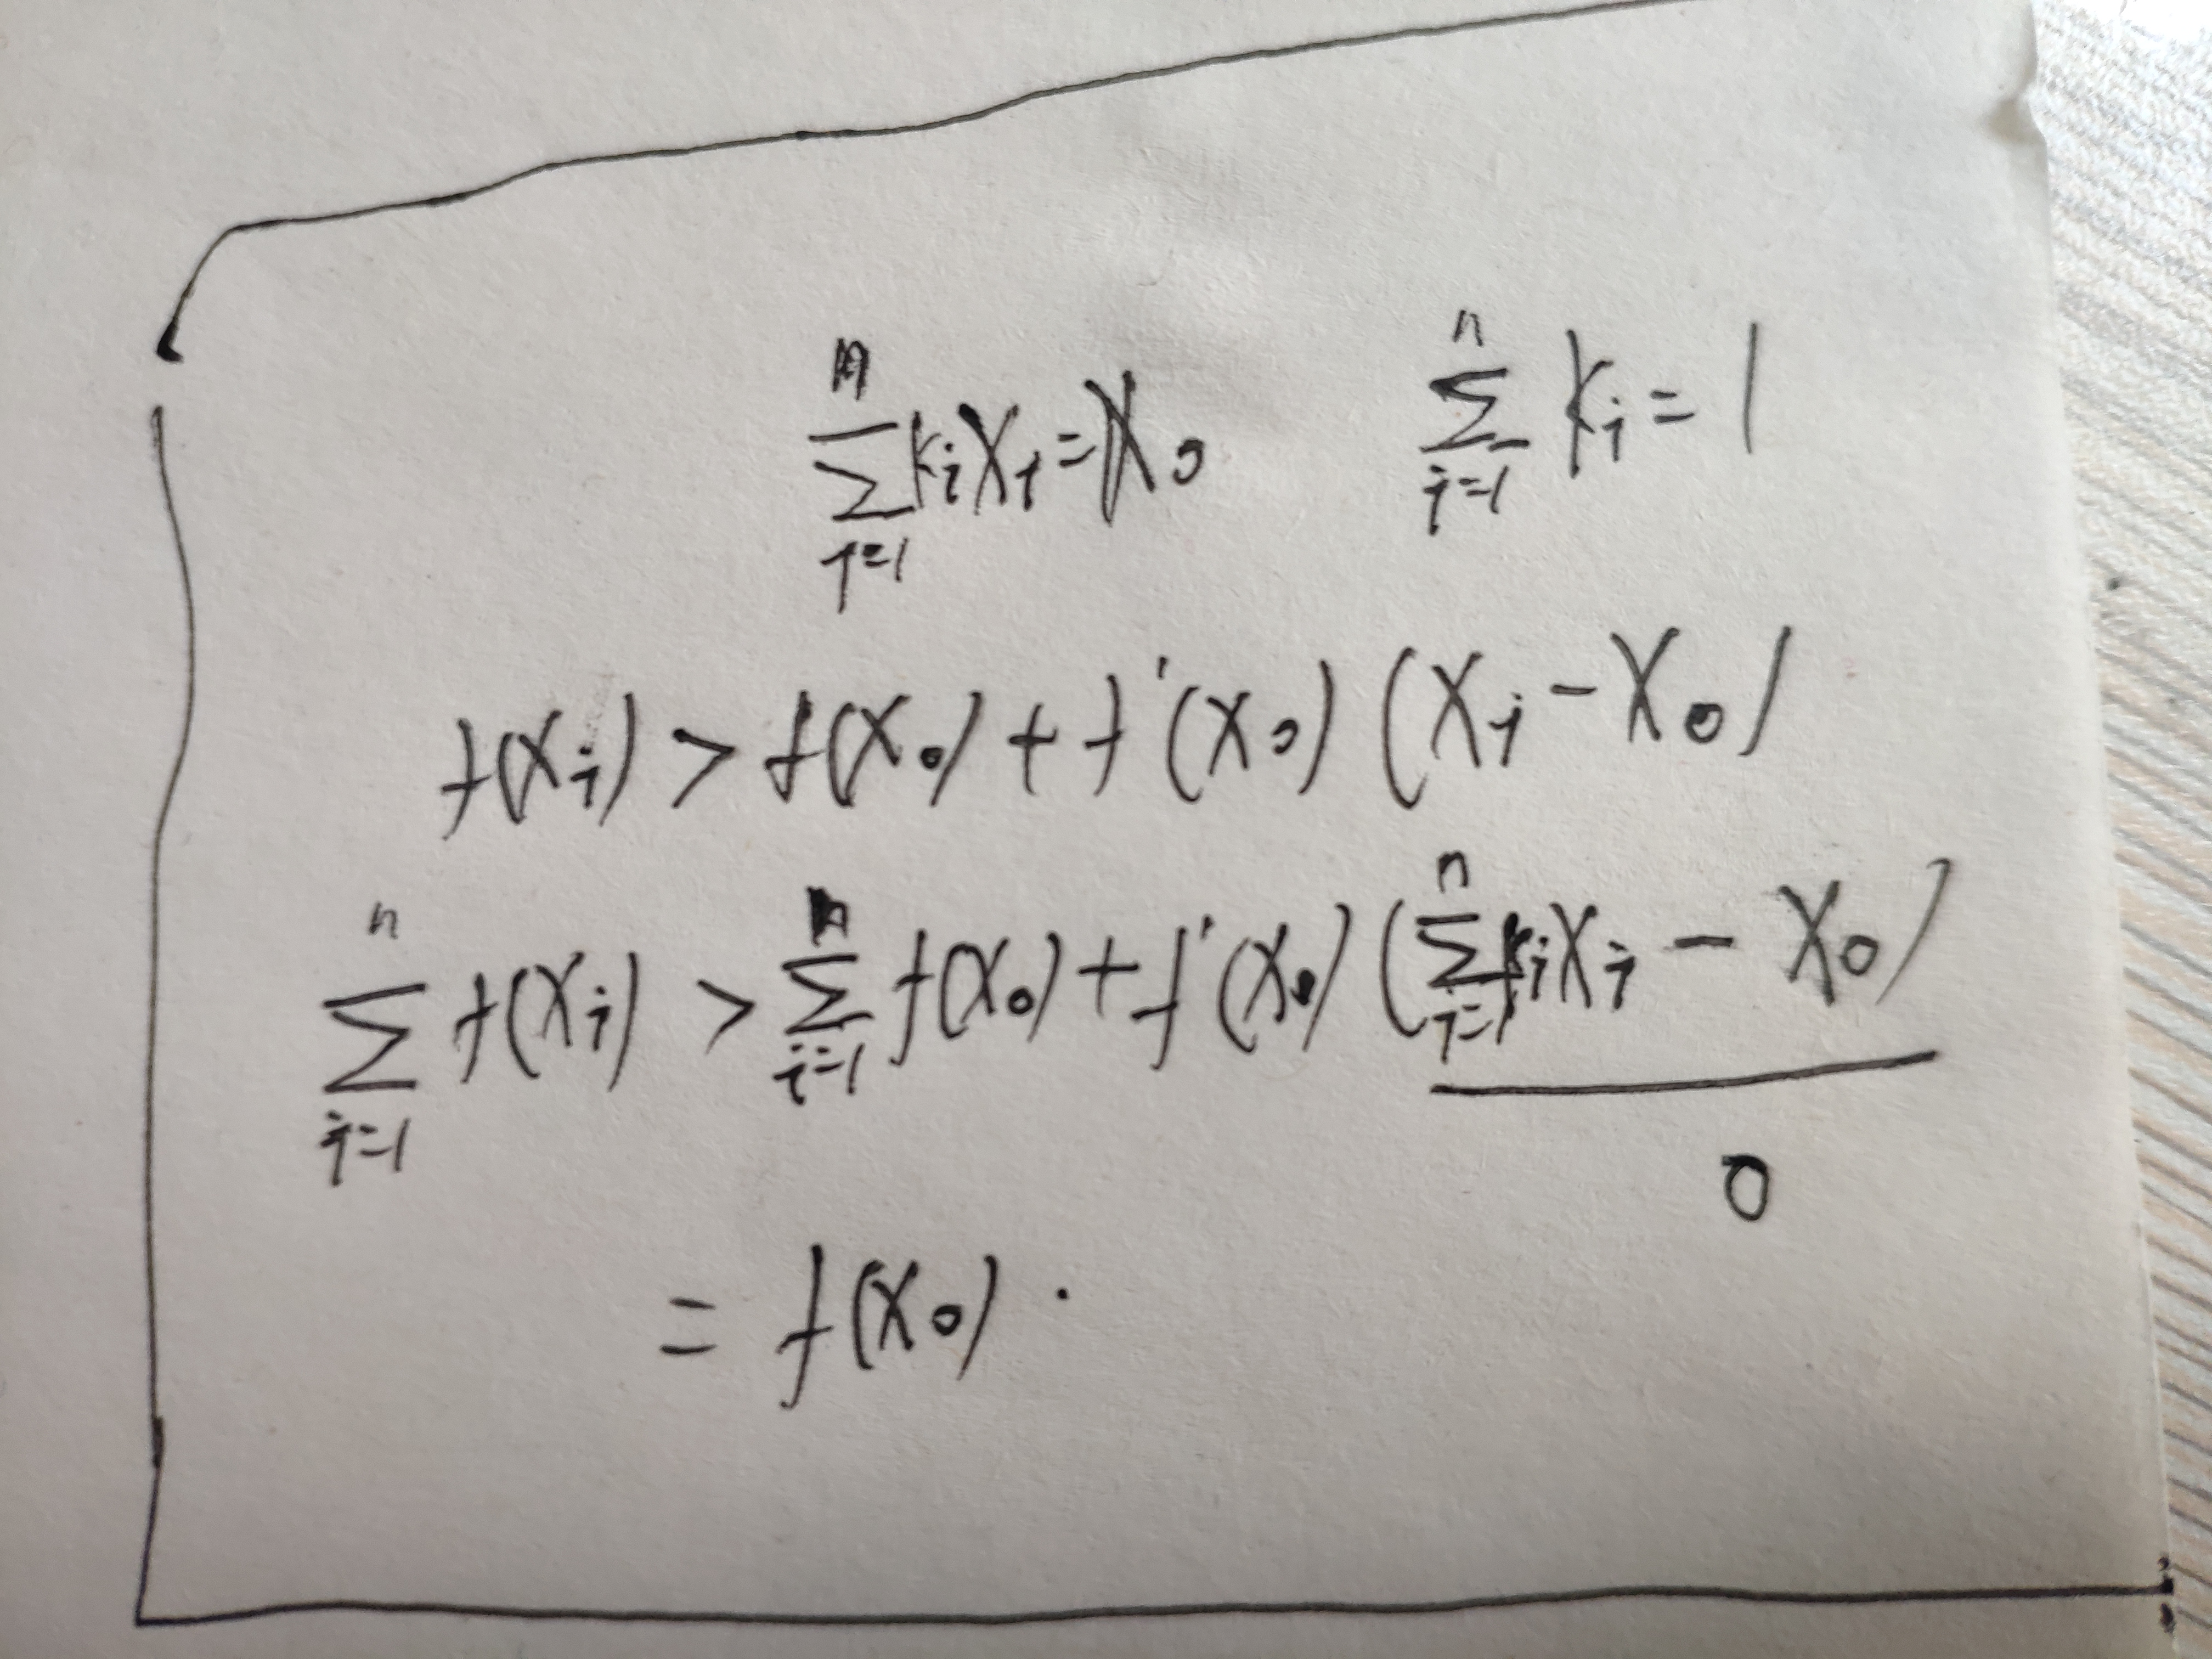 \sum_{i=1}^{n} k_i x_i = x_0    \sum_{i=1}^{n} k_i = 1
f(x_i) > f(x_0) + f'(x_0)(x_i - x_0)
\sum_{i=1}^{n} f(x_i) > \sum_{i=1}^{n} f(x_0) + f'(x_0)(\sum_{i=1}^{n} k_i x_i - x_0)
0
= f(x_0).